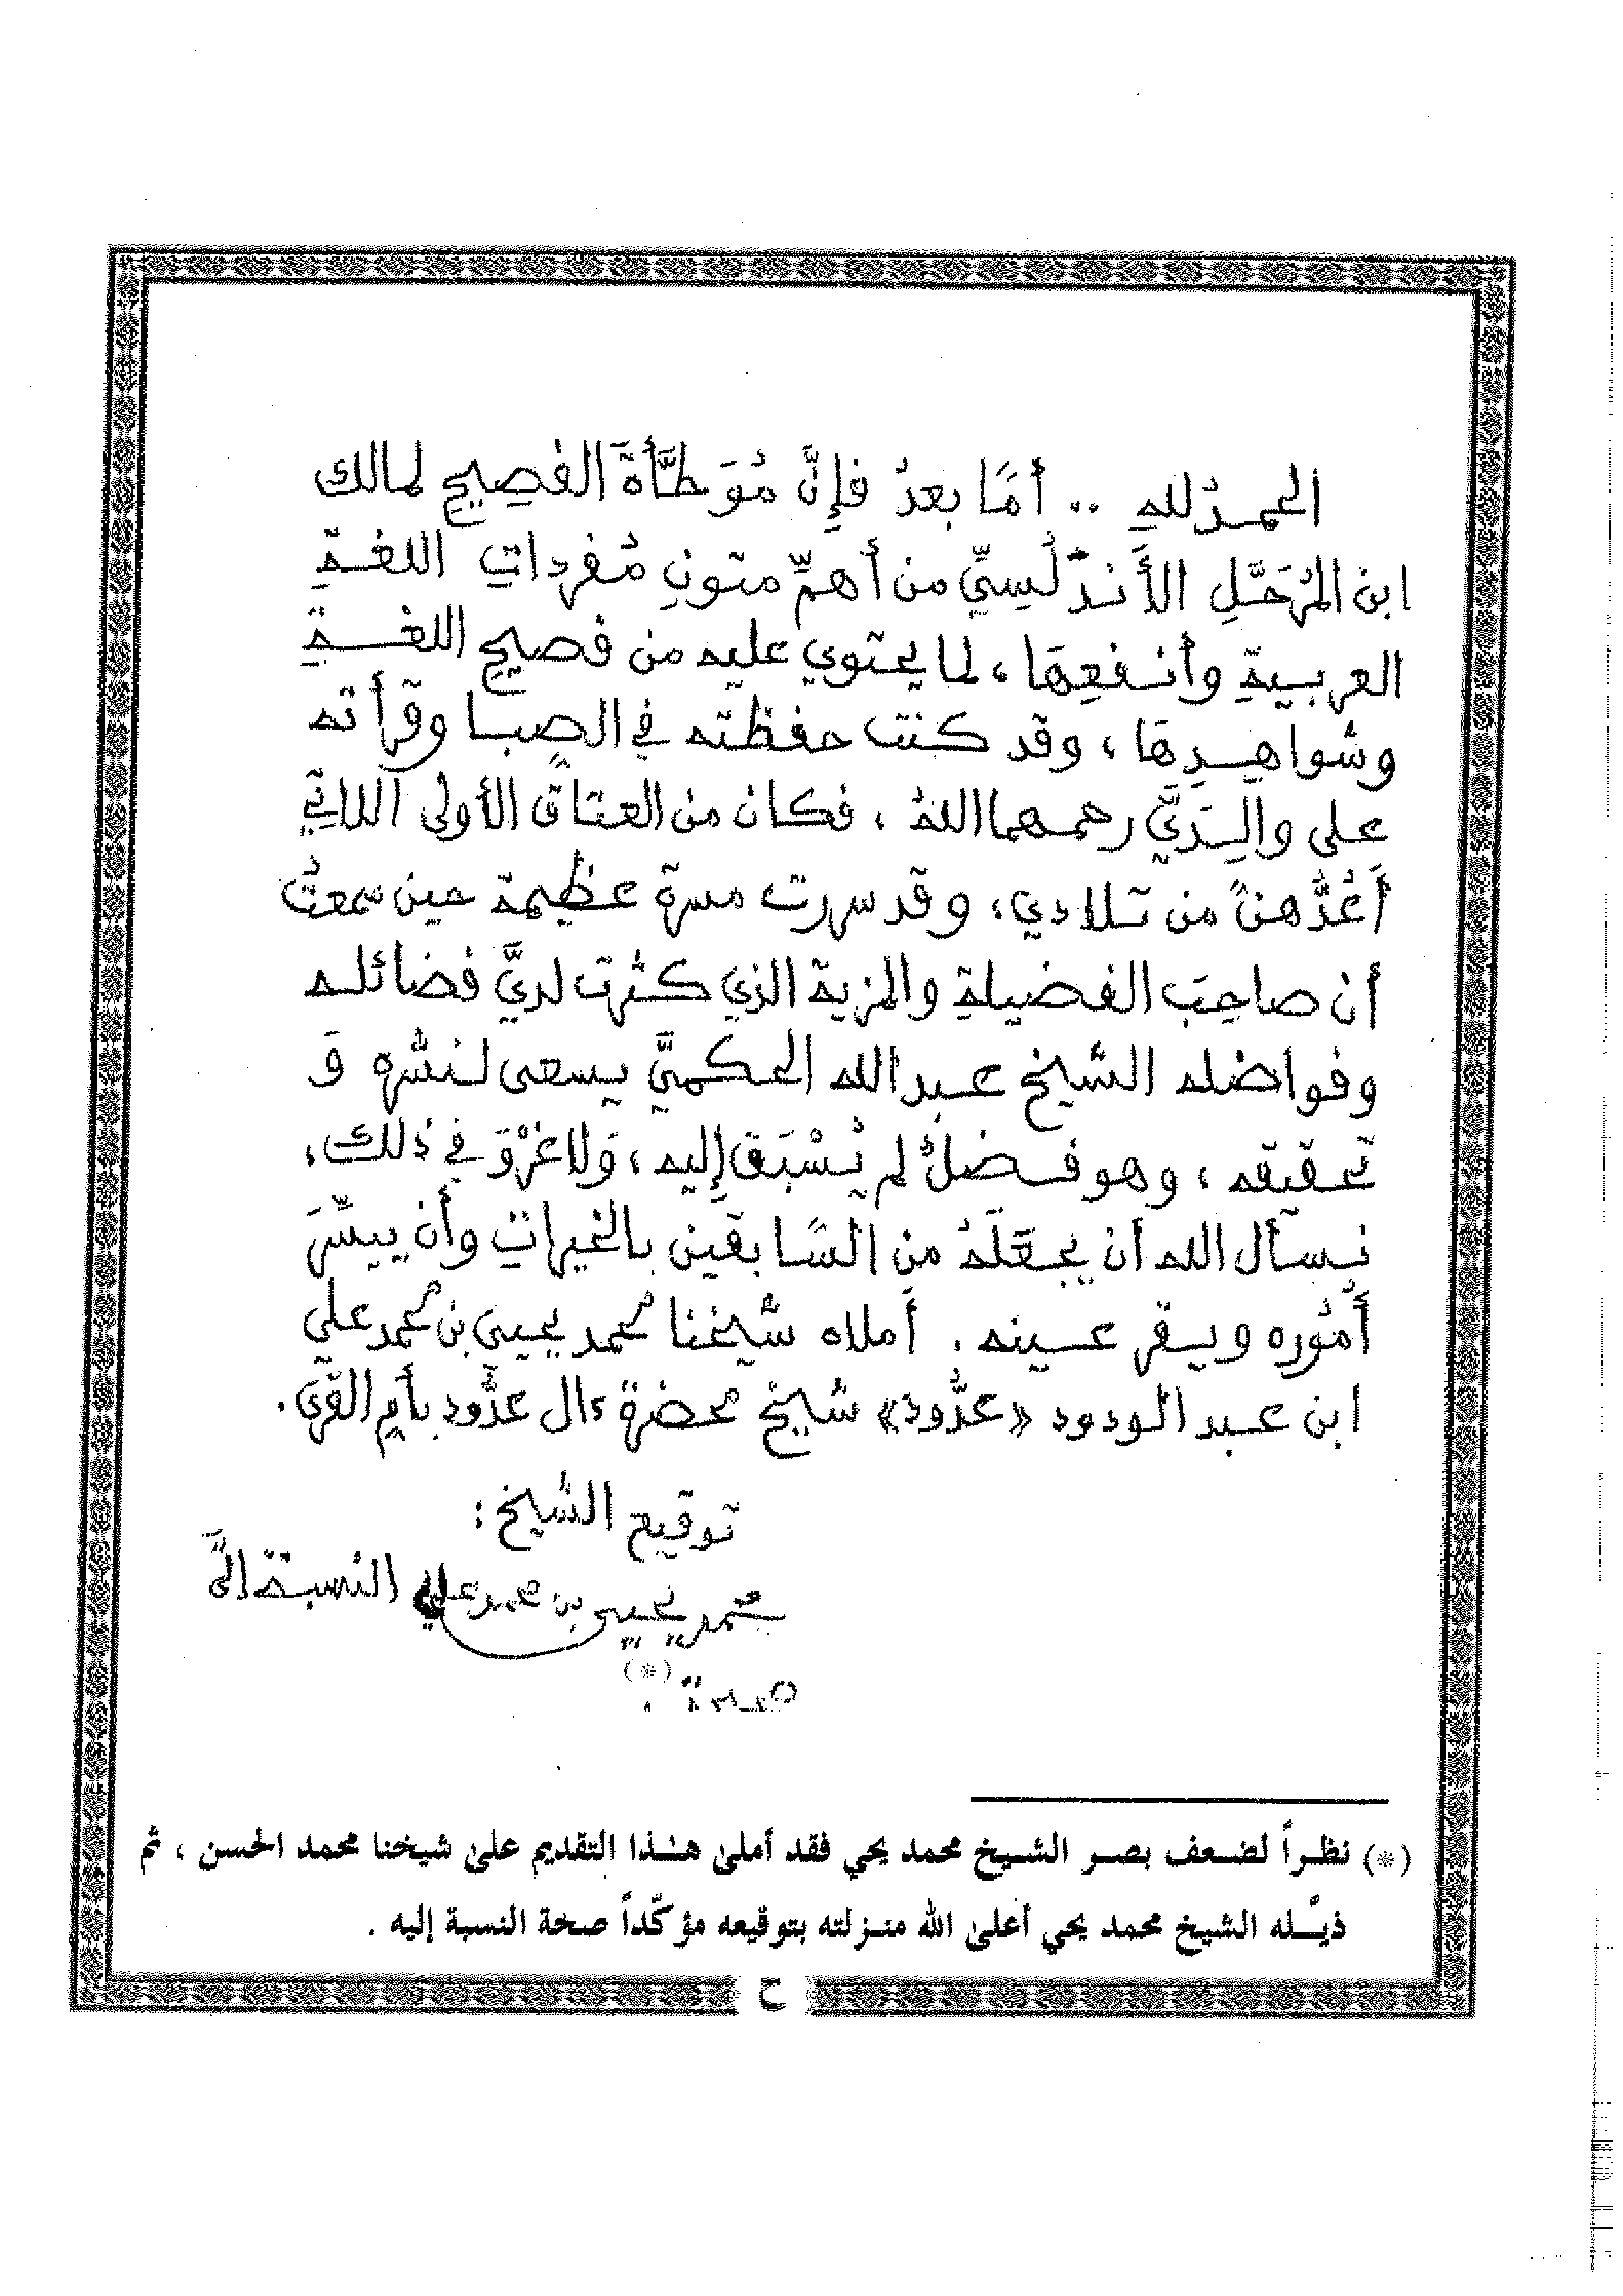 الحمدُ للهِ .. أمَّا بعدُ فإنَّ مُوَطَّأةَ الفصِيحِ لمالك
ابن المُرَحَّلِ الأندَلُسِيِّ من أهمِّ متونِ مُفرداتِ اللغةِ
العربيةِ وأنفعِهَا، لما يحتوي عليه من فصيحِ اللغةِ
وشواهِدِهَا، وقد كنت حفظته في الصِبا وقرأته
على والِدَيَّ رحمهما اللهُ، فكان من العتاق الأولى اللاتِي
أَعُدُّهنَّ من تلادي، وقد سررت مسرة عظيمة حين سمعتُ
أن صاحِبَ الفضيلةِ والمزية الذي كثرت لديَّ فضائله
وفواضله الشيخ عبد الله الحكميَّ يسعى لنشره وَ
تحقيقه، وهو فضلٌ لم يُسْبَق إليه، وَلا غَرْوَ في ذلك،
نسأل الله أن يجعَلَهُ من السَّابقين بالخيراتِ وأن ييسِّرَ
أُمُوره ويقر عينه. أملاه شيخنا محمد يحيى بن محمد علي
ابن عبد الودود «عدُّود» شيخ محضرة ءال عدُّود بأمِ القرى.
توقيع الشيخ:
محمد يحيى بن محمد علي النسبة إليَّ
(*)
(*) نظراً لضعف بصر الشيخ محمد يحي فقد أملىٰ هـٰذا التقديم علىٰ شيخنا محمد الحسن ، ثم
ذيَّله الشيخ محمد يحي أعلىٰ الله منزلته بتوقيعه مؤكّداً صحة النسبة إليه .
ح